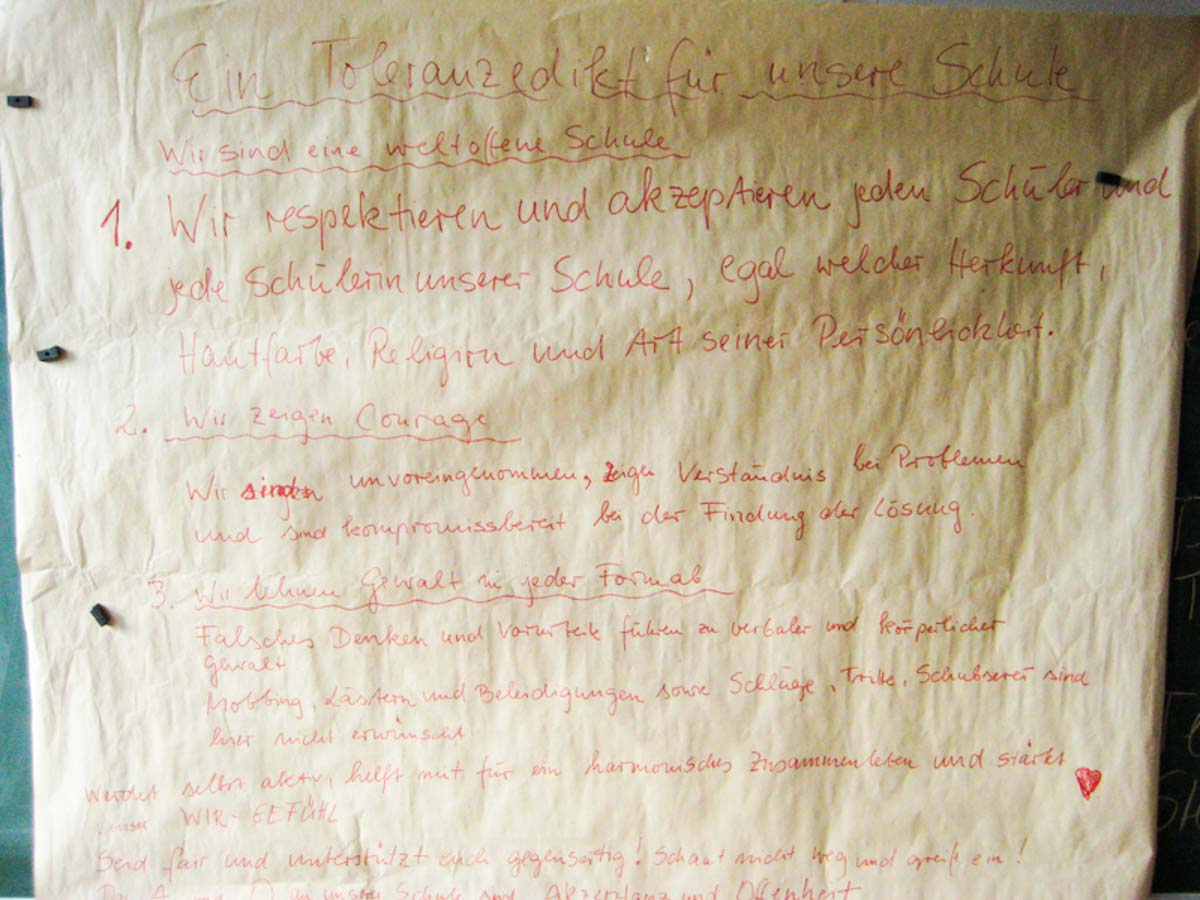 Ein Toleranzedikt für unsere Schule
Wir sind eine weltoffene Schule
1. Wir respektieren und akzeptieren jeden Schüler und
jede Schülerin unserer Schule, egal welcher Herkunft,
Hautfarbe, Religion und Art seiner Persönlichkeit.
2. Wir zeigen Courage
Wir sind unvoreingenommen, zeigen Verständnis bei Problemen
und sind kompromissbereit bei der Findung der Lösung.
3. Wir lehnen Gewalt in jeder Form ab
Falsches Denken und Vorurteile führen zu verbaler und körperlicher
Gewalt
Mobbing, Lästern und Beleidigungen sowie Schläge, Tritte, Schubserei sind
hier nicht erwünscht.
Werdet selbst aktiv, helft mit für ein harmonisches Zusammenleben und stärkt
unser WIR-GEFÜHL
Seid fair und unterstützt euch gegenseitig! Schaut nicht weg und greift ein!
Das A und O an unserer Schule sind Akzeptanz und Offenheit